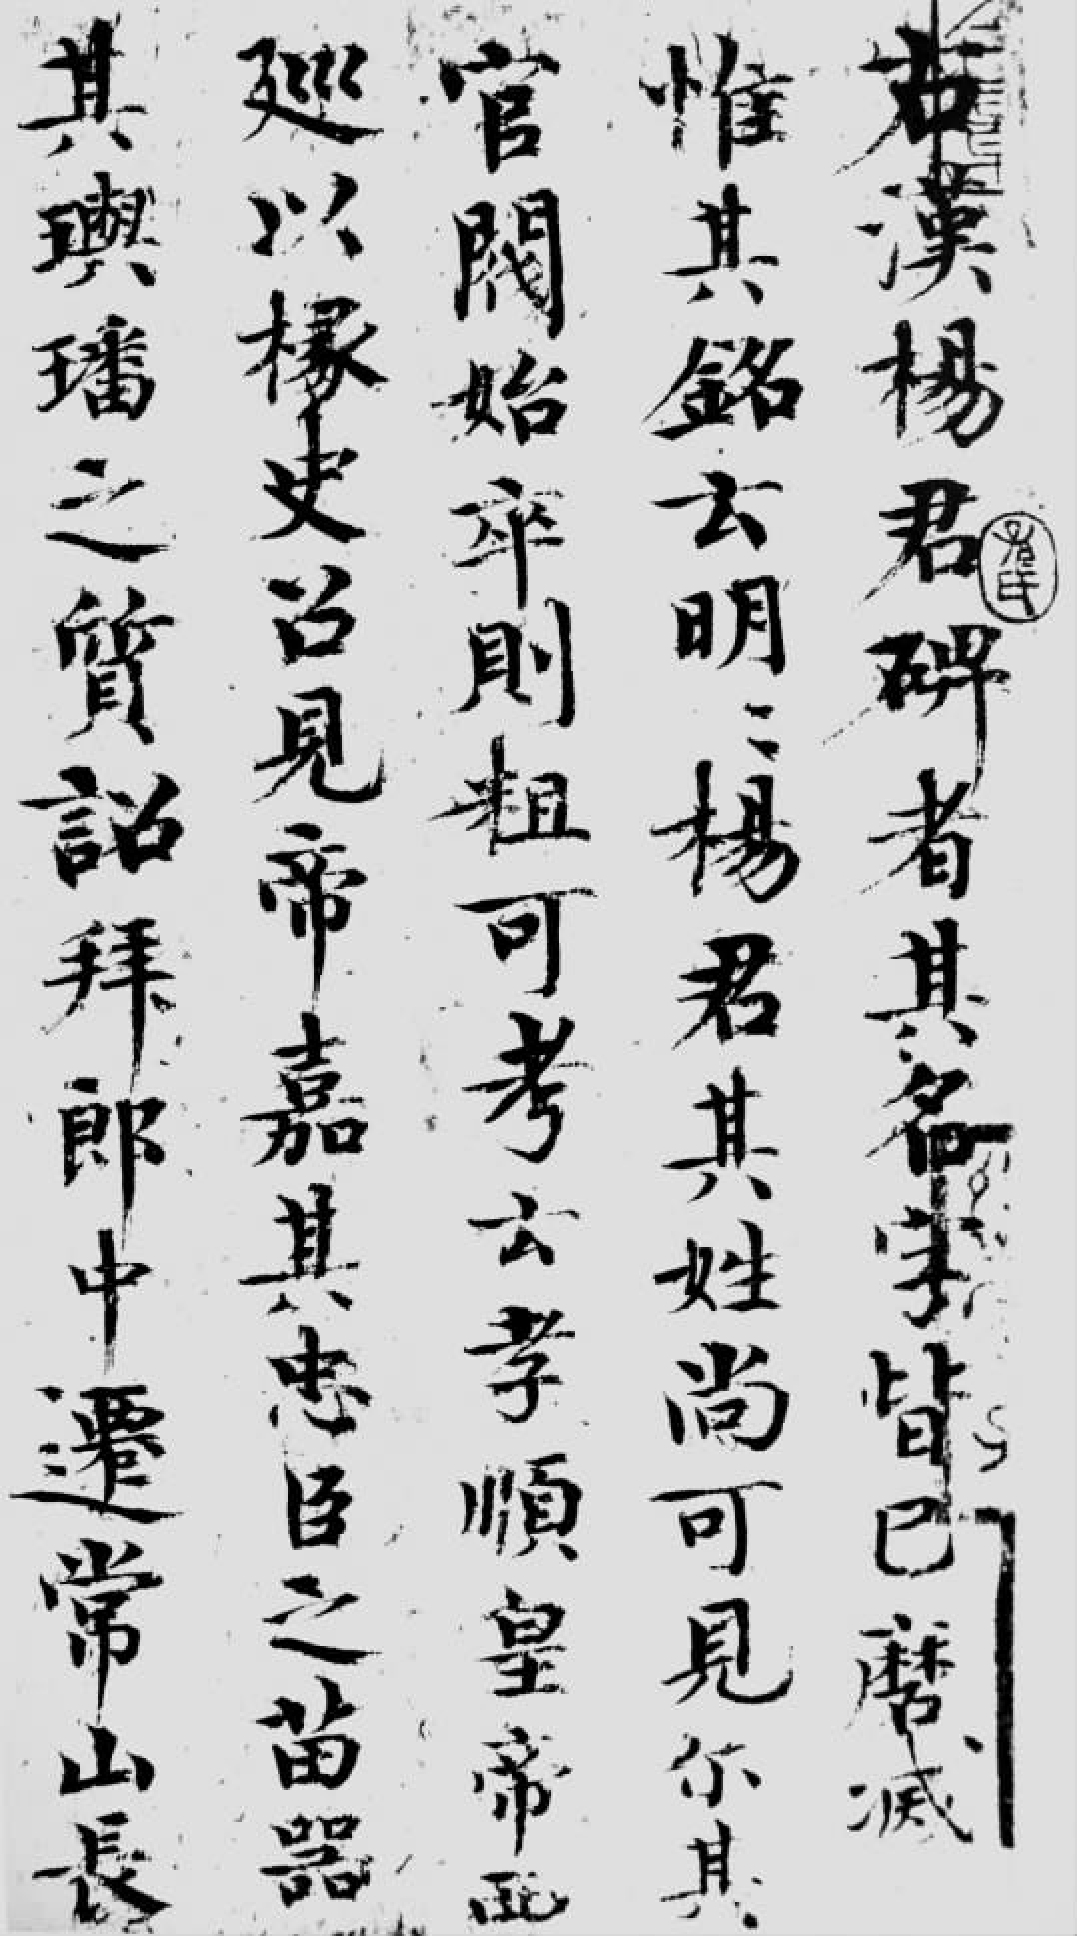 右漢楊君碑者其名字皆已磨滅
惟其銘云明〻楊君其姓尚可見尓其
官閥始卒則粗可考云孝順皇帝西
巡以椽史召見帝嘉其忠臣之苗器
其璵璠之質詔拜郎中遷常山長